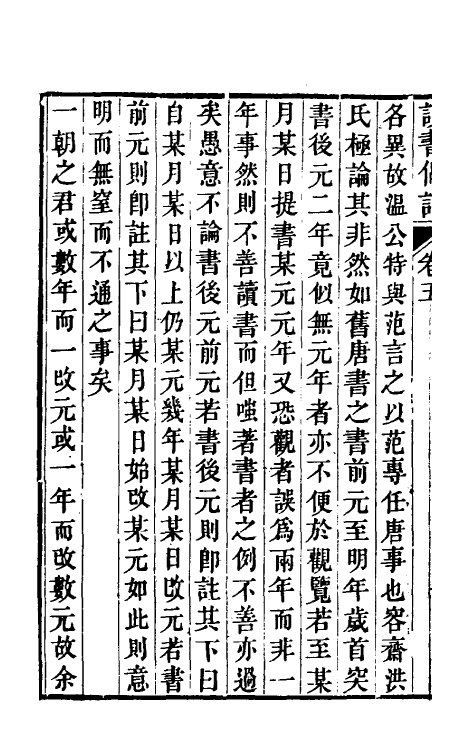 讀書偶記 卷五
各異故溫公特與范言之以范專任唐事也容齋洪
氏極論其非然如舊唐書之書前元至明年歲首突
書後元二年竟似無元年者亦不便於觀覽若至某
月某日提書某元元年又恐觀者誤爲兩年而非一
年事然則不善讀書而但嗤著書者之例不善亦過
矣愚意不論書後元前元若書後元則卽註其下曰
自某月某日以上仍某元幾年某月某日攺元若書
前元則卽註其下曰某月某日始攺某元如此則意
明而無窒而不通之事矣
一朝之君或數年而一攺元或一年而攺數元故余